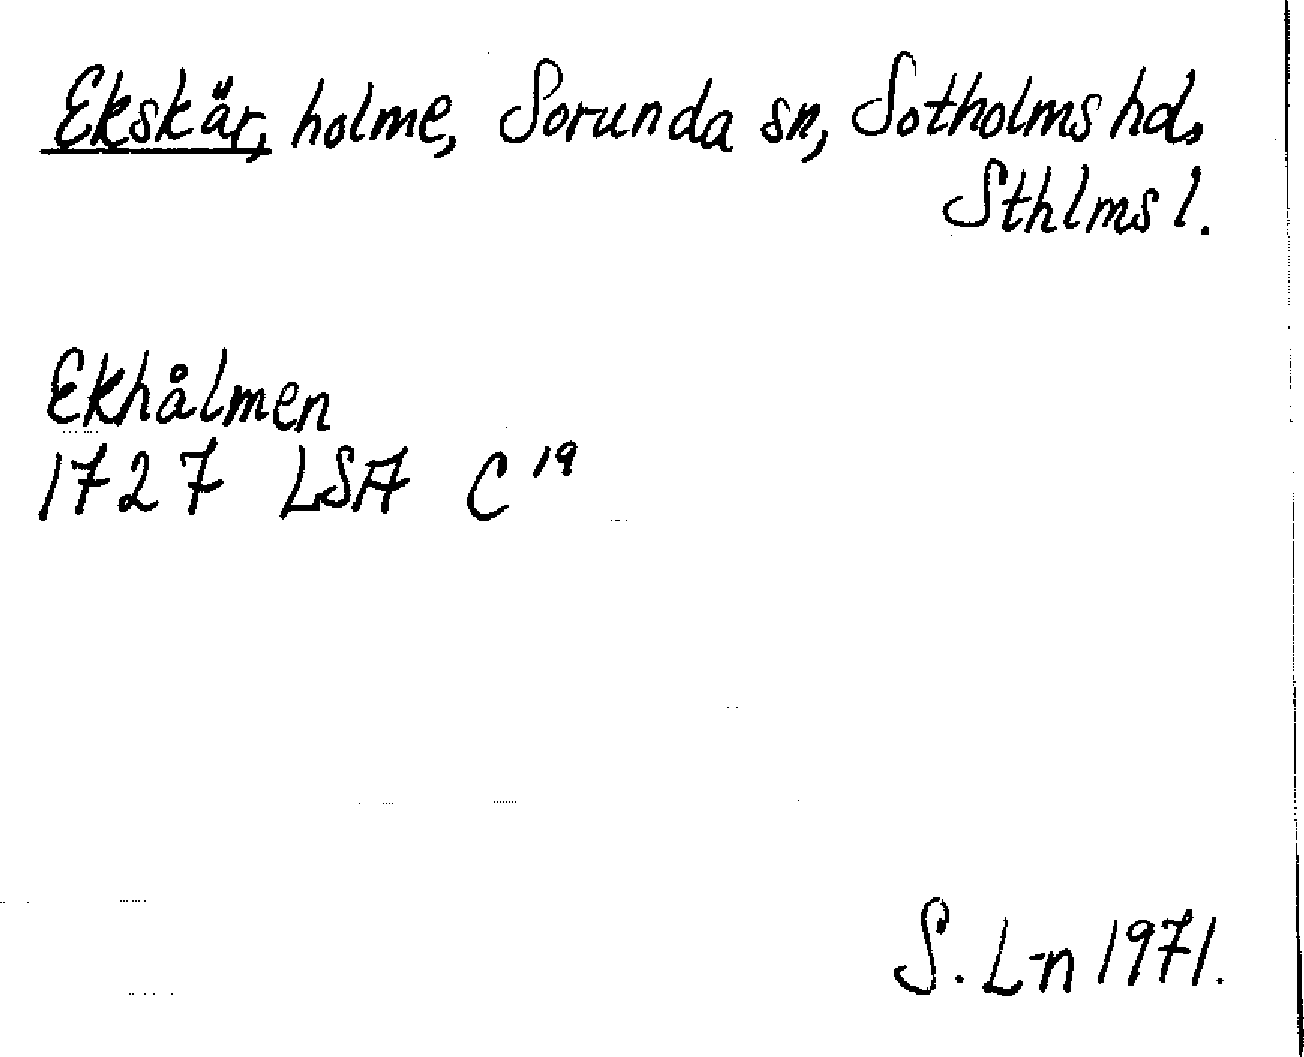 Ekskär, holme, Sorunda sn, Sotholms hd,
Sthlms l.
Ekhålmen
1727 LSA C 19
S. L-n 1971.